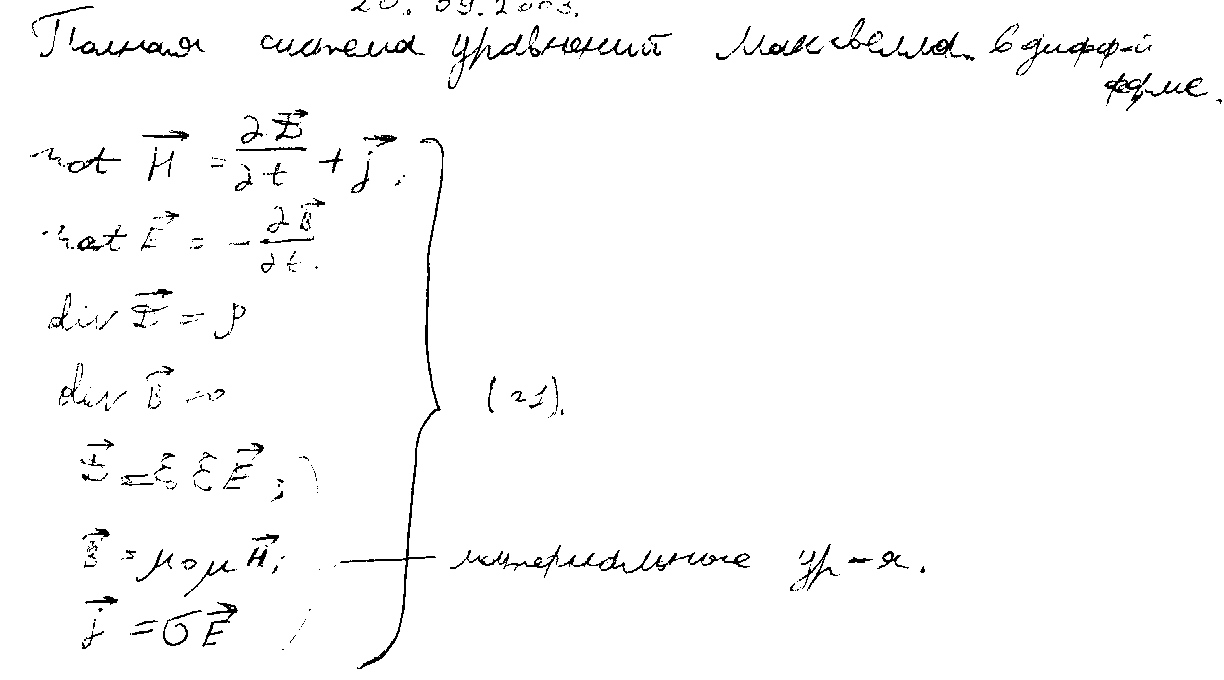 20.09.2003.
Полная система уравнений Максвелла. в дифф-й
форме.
rot H⃗ = ∂D⃗/∂t + j⃗,
rot E⃗ = -∂B⃗/∂t.
div D⃗ = ρ
div B⃗ = 0
(21).
D⃗ = ε ε E⃗;
B⃗ = μ₀ μ H⃗; — материальные ур-я.
j⃗ = σE⃗